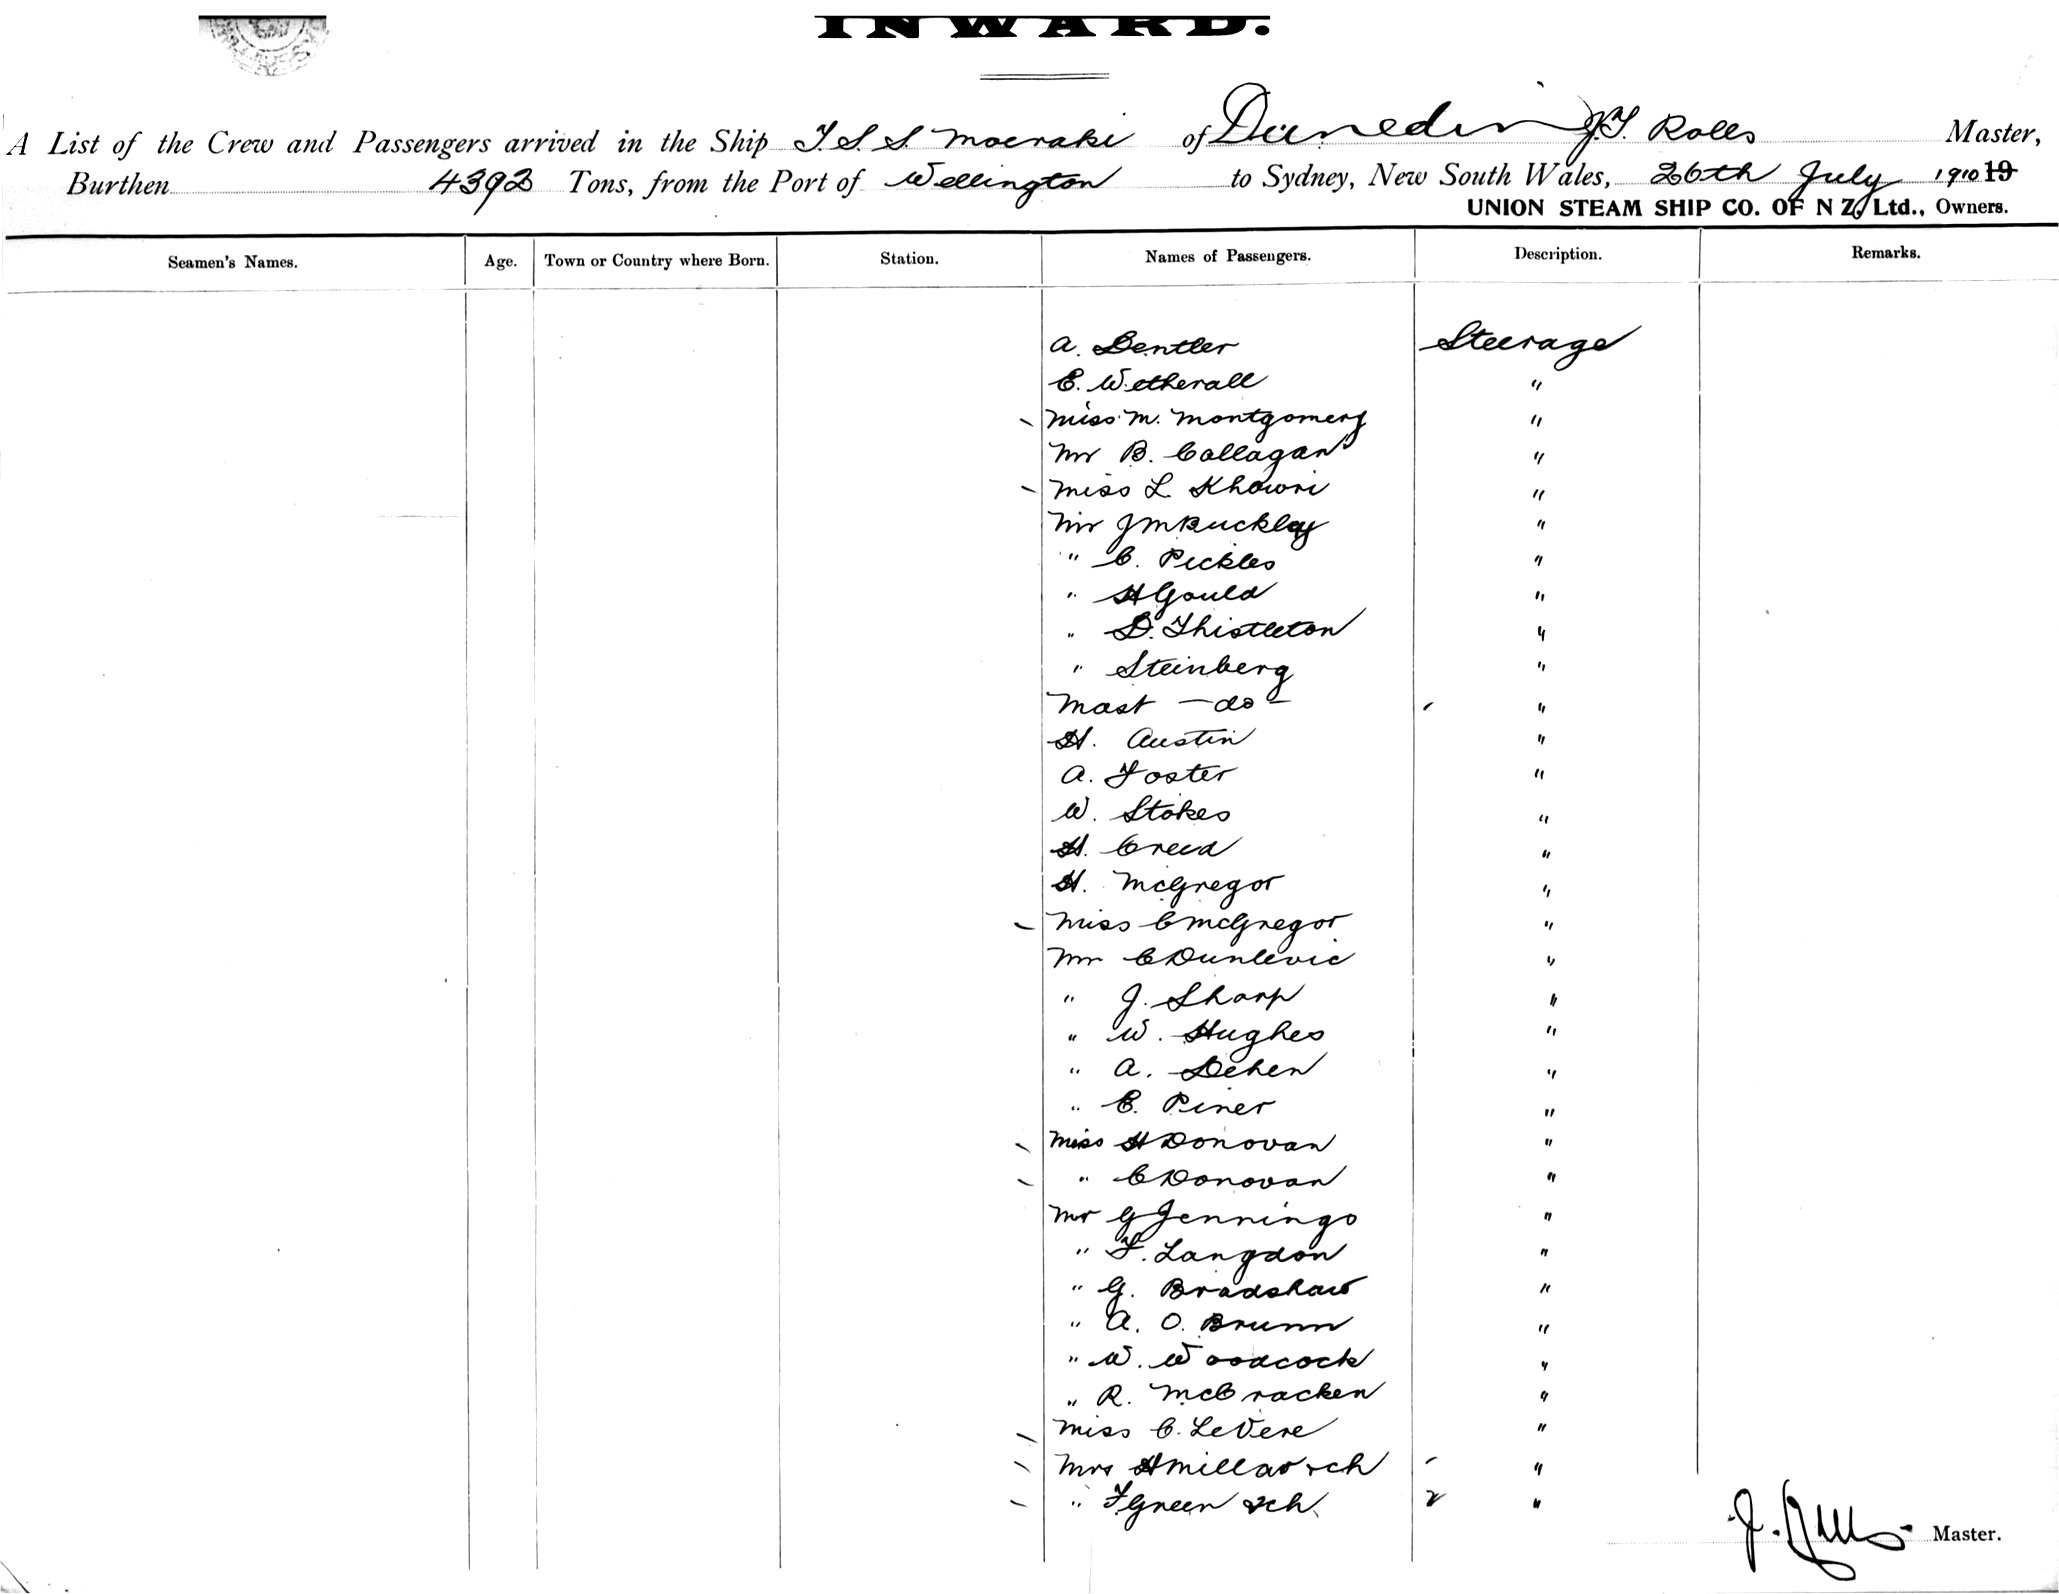 INWARD.
A List of the Crew and Passengers arrived in the Ship T.S.S. Moeraki of Dunedin J.T. Rolls Master,
Burthen 4392 Tons, from the Port of Wellington to Sydney, New South Wales, 26th July 1910 19
UNION STEAM SHIP CO. OF N Z. Ltd., Owners.
Seamen's Names. Age. Town or Country where Born. Station. Names of Passengers. Description. Remarks.
A. Dentler Steerage
E. Wetherall "
Miss M. Montgomery "
Mr B. Callagan "
Miss L. Khowri "
Mr J M Buckley "
" C. Pickles "
" H Gould "
" D. Thistleton "
" Steinberg "
Mast — do — "
H. Austin "
A. Foster "
W. Stokes "
H. Creed "
H. McGregor "
Miss C McGregor "
Mr C Dunlevie "
" J. Sharp "
" W. Hughes "
" A. Dehen "
" E. Piner "
Miss H Donovan "
" C Donovan "
Mr G Jennings "
" F. Langdon "
" G. Bradshaw "
" A. O. Brunn "
" W. Woodcock "
" R. McCracken "
Miss C. LeVere "
Mrs H Millar & ch "
" F Green & ch. 2 "
Master.